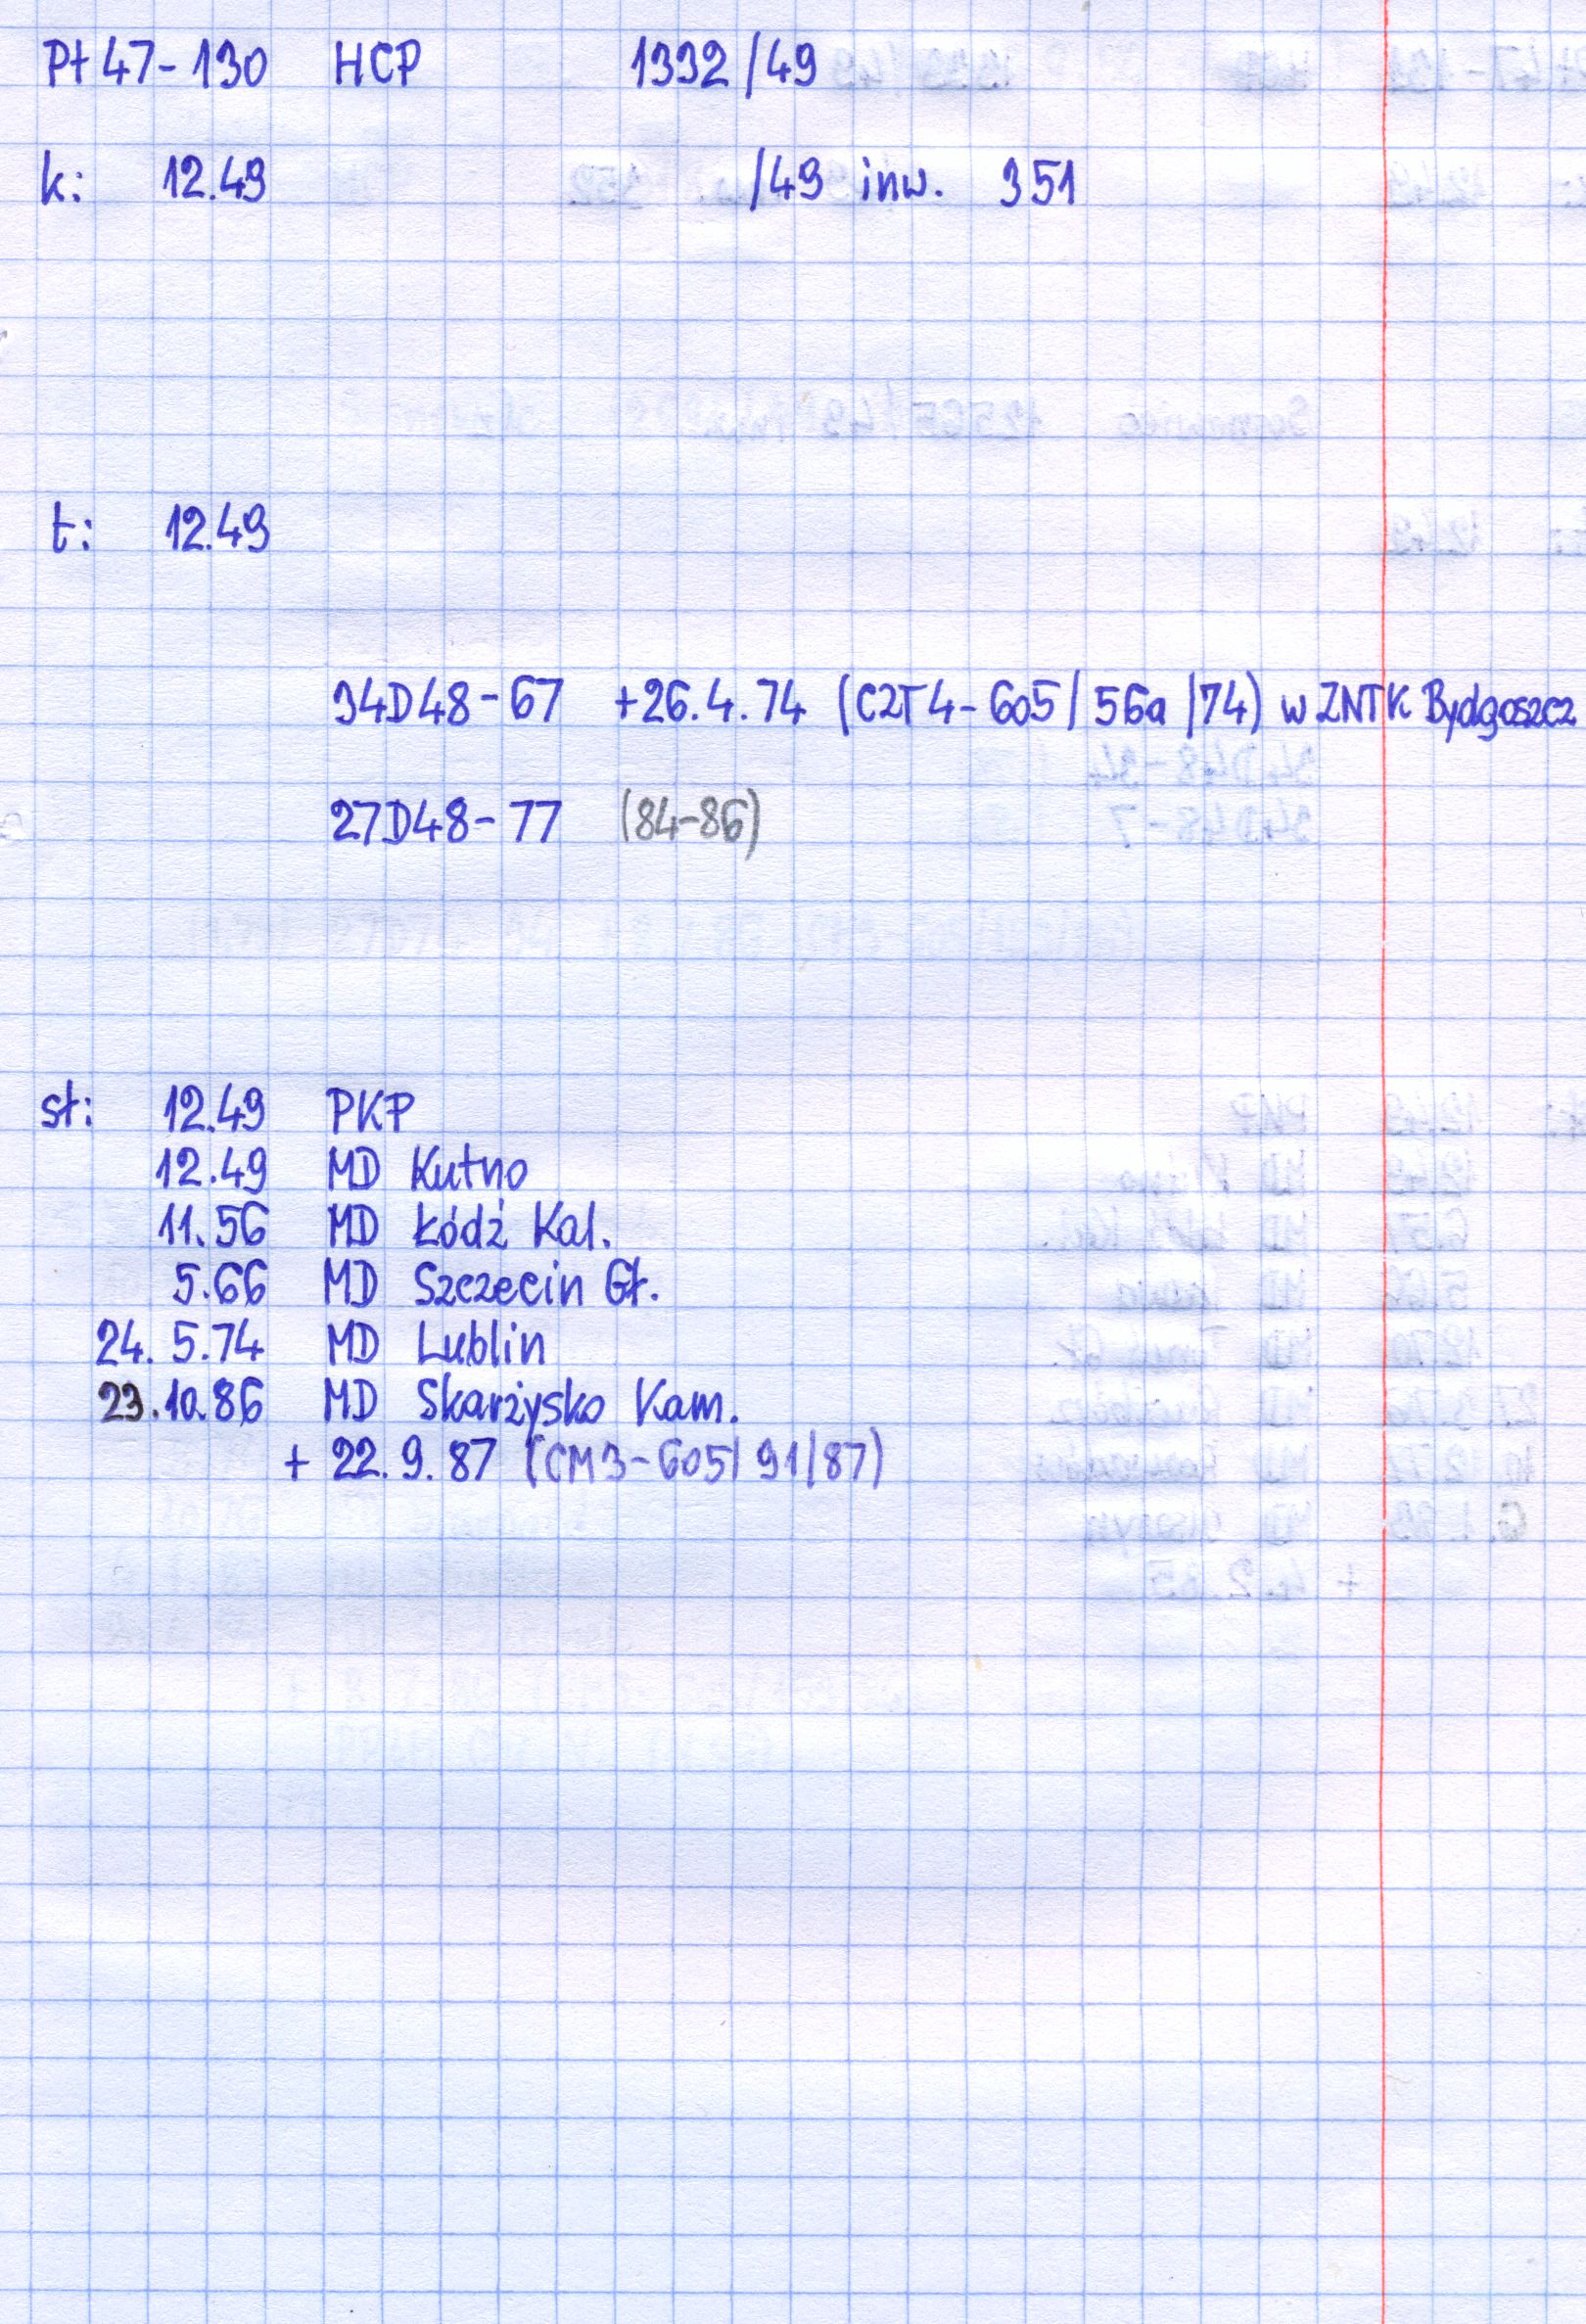 Pt 47-130 HCP 1332/49
k: 12.49 /49 inw. 351
t: 12.49
34D48-67 +26.4.74 (CZT4-605/56a/74) w ZNTK Bydgoszcz
27D48-77 (84-86)
st: 12.49 PKP
12.49 MD Kutno
11.56 MD Łódź Kal.
5.66 MD Szczecin Gł.
24. 5.74 MD Lublin
23.10.86 MD Skarżysko Kam.
+ 22.9.87 (CM3-605/91/87)